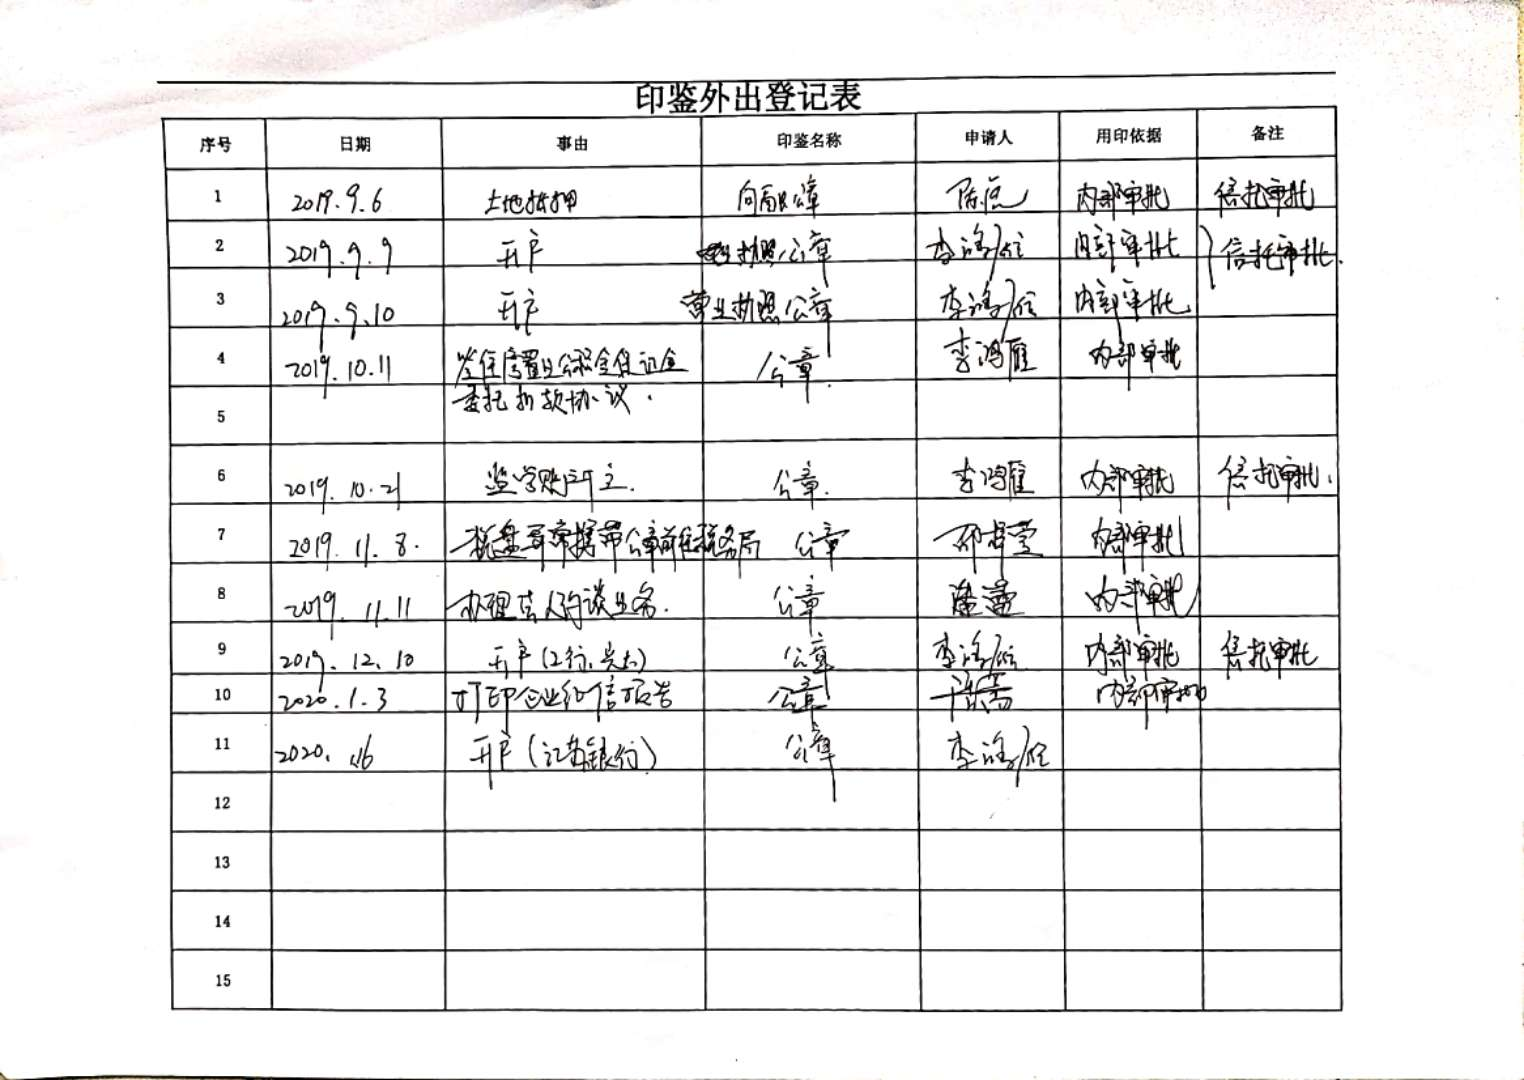 印鉴外出登记表
序号 日期 事由 印鉴名称 申请人 用印依据 备注
1 2019.9.6 土地抵押 公章 内部审批 信托审批
2 2019.9.9 开户 执照公章 李鸿雁 内部审批 信托审批.
3 2019.9.10 开户 营业执照公章 李鸿雁 内部审批
4 2019.10.11 签住房置业公积金保证金 公章. 李鸿雁 内部审批
委托扣款协议.
5
6 2019.10.21 监管账户开立. 公章. 李鸿雁 内部审批 信托审批.
7 2019.11.8. 携带公章前往税务局 公章 内部审批
8 2019.11.11 办理法人约谈业务. 公章 内部审批
9 2019.12.10 开户(工行、光大) 公章 李鸿雁 内部审批 信托审批
10 2020.1.3 打印企业征信报告 公章 内部审批
11 2020. 开户(江苏银行) 公章 李鸿雁
12
13
14
15